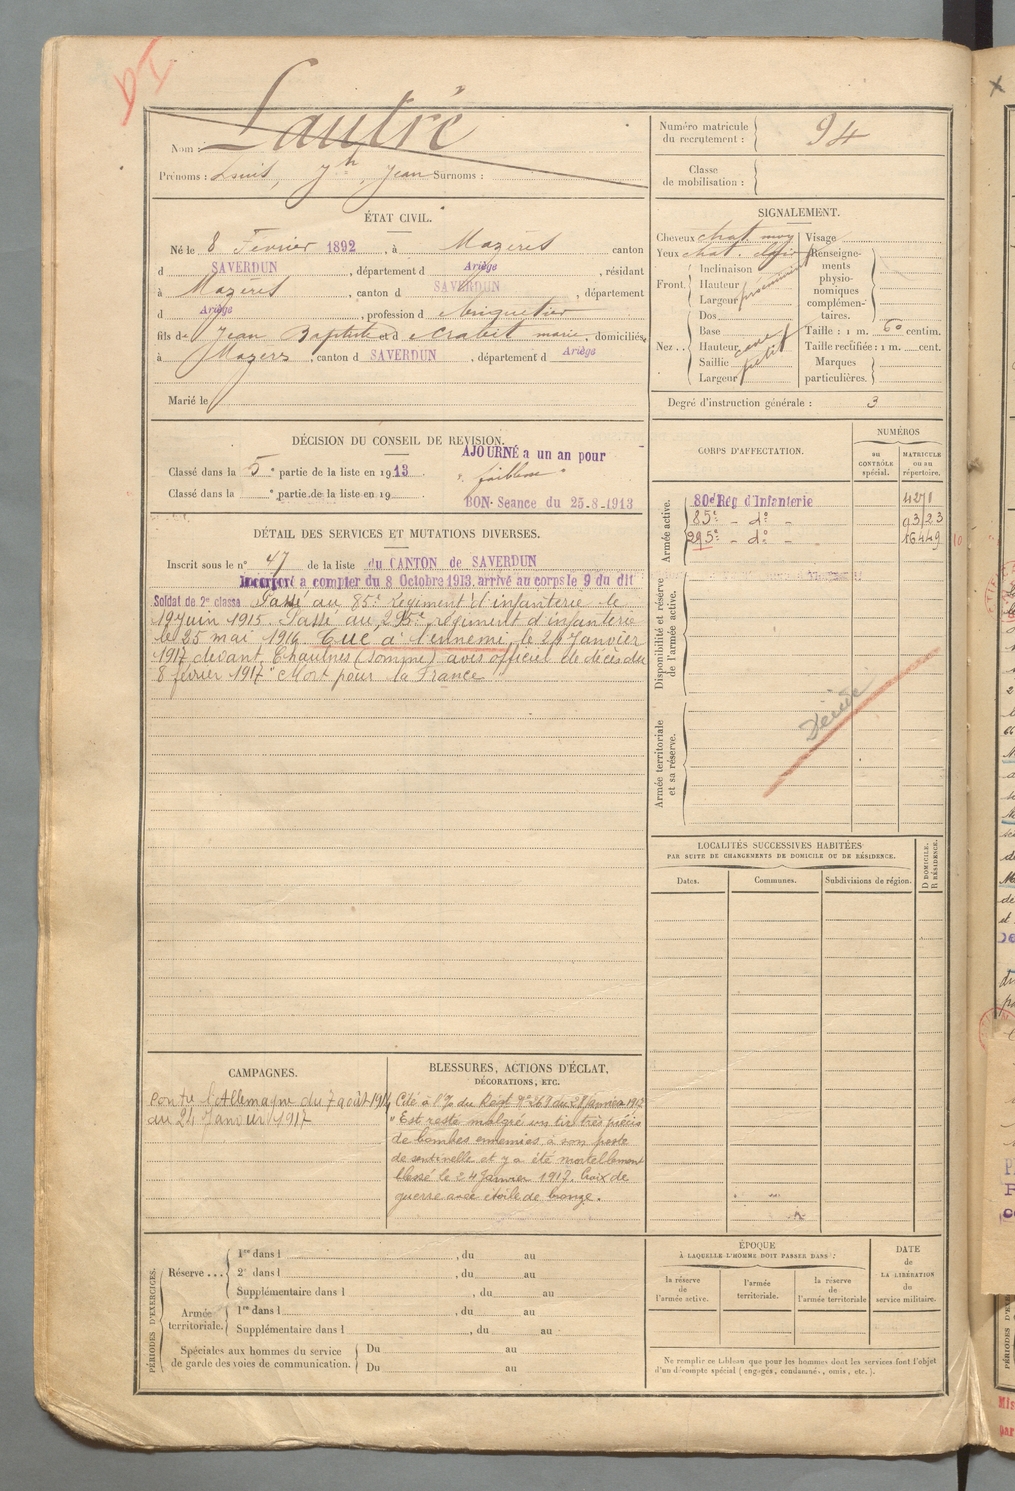 DI
Nom : Lautré
Prénoms : Louis, Jh, Jean Surnoms :
Numéro matricule du recrutement : 94
Classe de mobilisation :
ÉTAT CIVIL.
Né le 8 Fevrier 1892, à Mazères canton
d SAVERDUN, département d Ariège, résidant
à Mazères, canton d SAVERDUN, département
d Ariège, profession d briquetier
fils de Jean Baptiste et d Crabit marie, domiciliés
à Mazers, canton d SAVERDUN, département d Ariège
Marié le
SIGNALEMENT.
Cheveux chat moy
Yeux chat. clair
Front. Inclinaison
Hauteur
Largeur
Nez.. Dos
Base
Hauteur
Saillie
Largeur
Visage
Renseignements physionomiques complémentaires.
Taille : 1 m. 60 centim.
Taille rectifiée : 1 m. cent.
Marques particulières.
Degré d'instruction générale : 3
DÉCISION DU CONSEIL DE REVISION.
AJOURNÉ a un an pour
Classé dans la 5e partie de la liste en 1913
" faiblesse "
Classé dans la e partie de la liste en 19
BON- Seance du 25.8-1913
DÉTAIL DES SERVICES ET MUTATIONS DIVERSES.
Inscrit sous le n° 47 de la liste du CANTON de SAVERDUN
Incorporé a compter du 8 Octobre 1913, arrivé au corps le 9 du dit
Soldat de 2e classe Passé au 85e Régiment d'infanterie le
19 juin 1915. Passé au 295e régiment d'infanterie
le 25 mai 1916. Tué à l'ennemi le 24 Janvier
1917 devant Chaulnes (Somme) avis officiel de décès du
8 février 1917 "Mort pour la France"
CORPS D'AFFECTATION.
NUMÉROS
au CONTRÔLE spécial.
MATRICULE ou au répertoire.
Armée active.
80e Rég d'Infanterie 4271
85e - do - 9323
295e - do - 16449 10
Disponibilité et réserve de l'armée active.
Armée territoriale et sa réserve.
Décédé
LOCALITÉS SUCCESSIVES HABITÉES
PAR SUITE DE CHANGEMENTS DE DOMICILE OU DE RÉSIDENCE.
Dates.
Communes.
Subdivisions de région.
D DOMICILE. R RÉSIDENCE.
CAMPAGNES.
Contre l'Allemagne du 7 août 1914
au 24 Janvier 1917
BLESSURES, ACTIONS D'ÉCLAT,
DÉCORATIONS, ETC.
Cité à l'O/ du Régt No 268 du 28 Janvier 1917
"Est resté malgré un tir très précis
de bombes ennemies à son poste
de sentinelle et y a été mortellement
blessé le 24 Janvier 1917. Croix de
guerre avec étoile de bronze.
PÉRIODES D'EXERCICES.
Réserve... 1re dans l , du au
2e dans l , du au
Supplémentaire dans l , du au
Armée territoriale. 1re dans l , du au
Supplémentaire dans l , du au
Spéciales aux hommes du service
de garde des voies de communication.
Du au
Du au
ÉPOQUE
À LAQUELLE L'HOMME DOIT PASSER DANS :
la réserve de l'armée active.
l'armée territoriale.
la réserve de l'armée territoriale
DATE de LA LIBÉRATION du service militaire.
Ne remplir ce tableau que pour les hommes dont les services font l'objet
d'un décompte spécial (engagés, condamnés, omis, etc.).